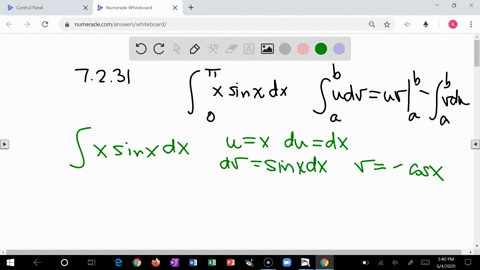 Control Panel
Numerade Whiteboard
numerade.com/answers/whiteboard/
7.2.31 ∫₀^π x sin x dx ∫ₐᵇ u dv = uv |ₐᵇ - ∫ₐᵇ v du
∫ x sin x dx u = x du = dx
dv = sin x dx v = - cos x
3:40 PM
5/4/2020